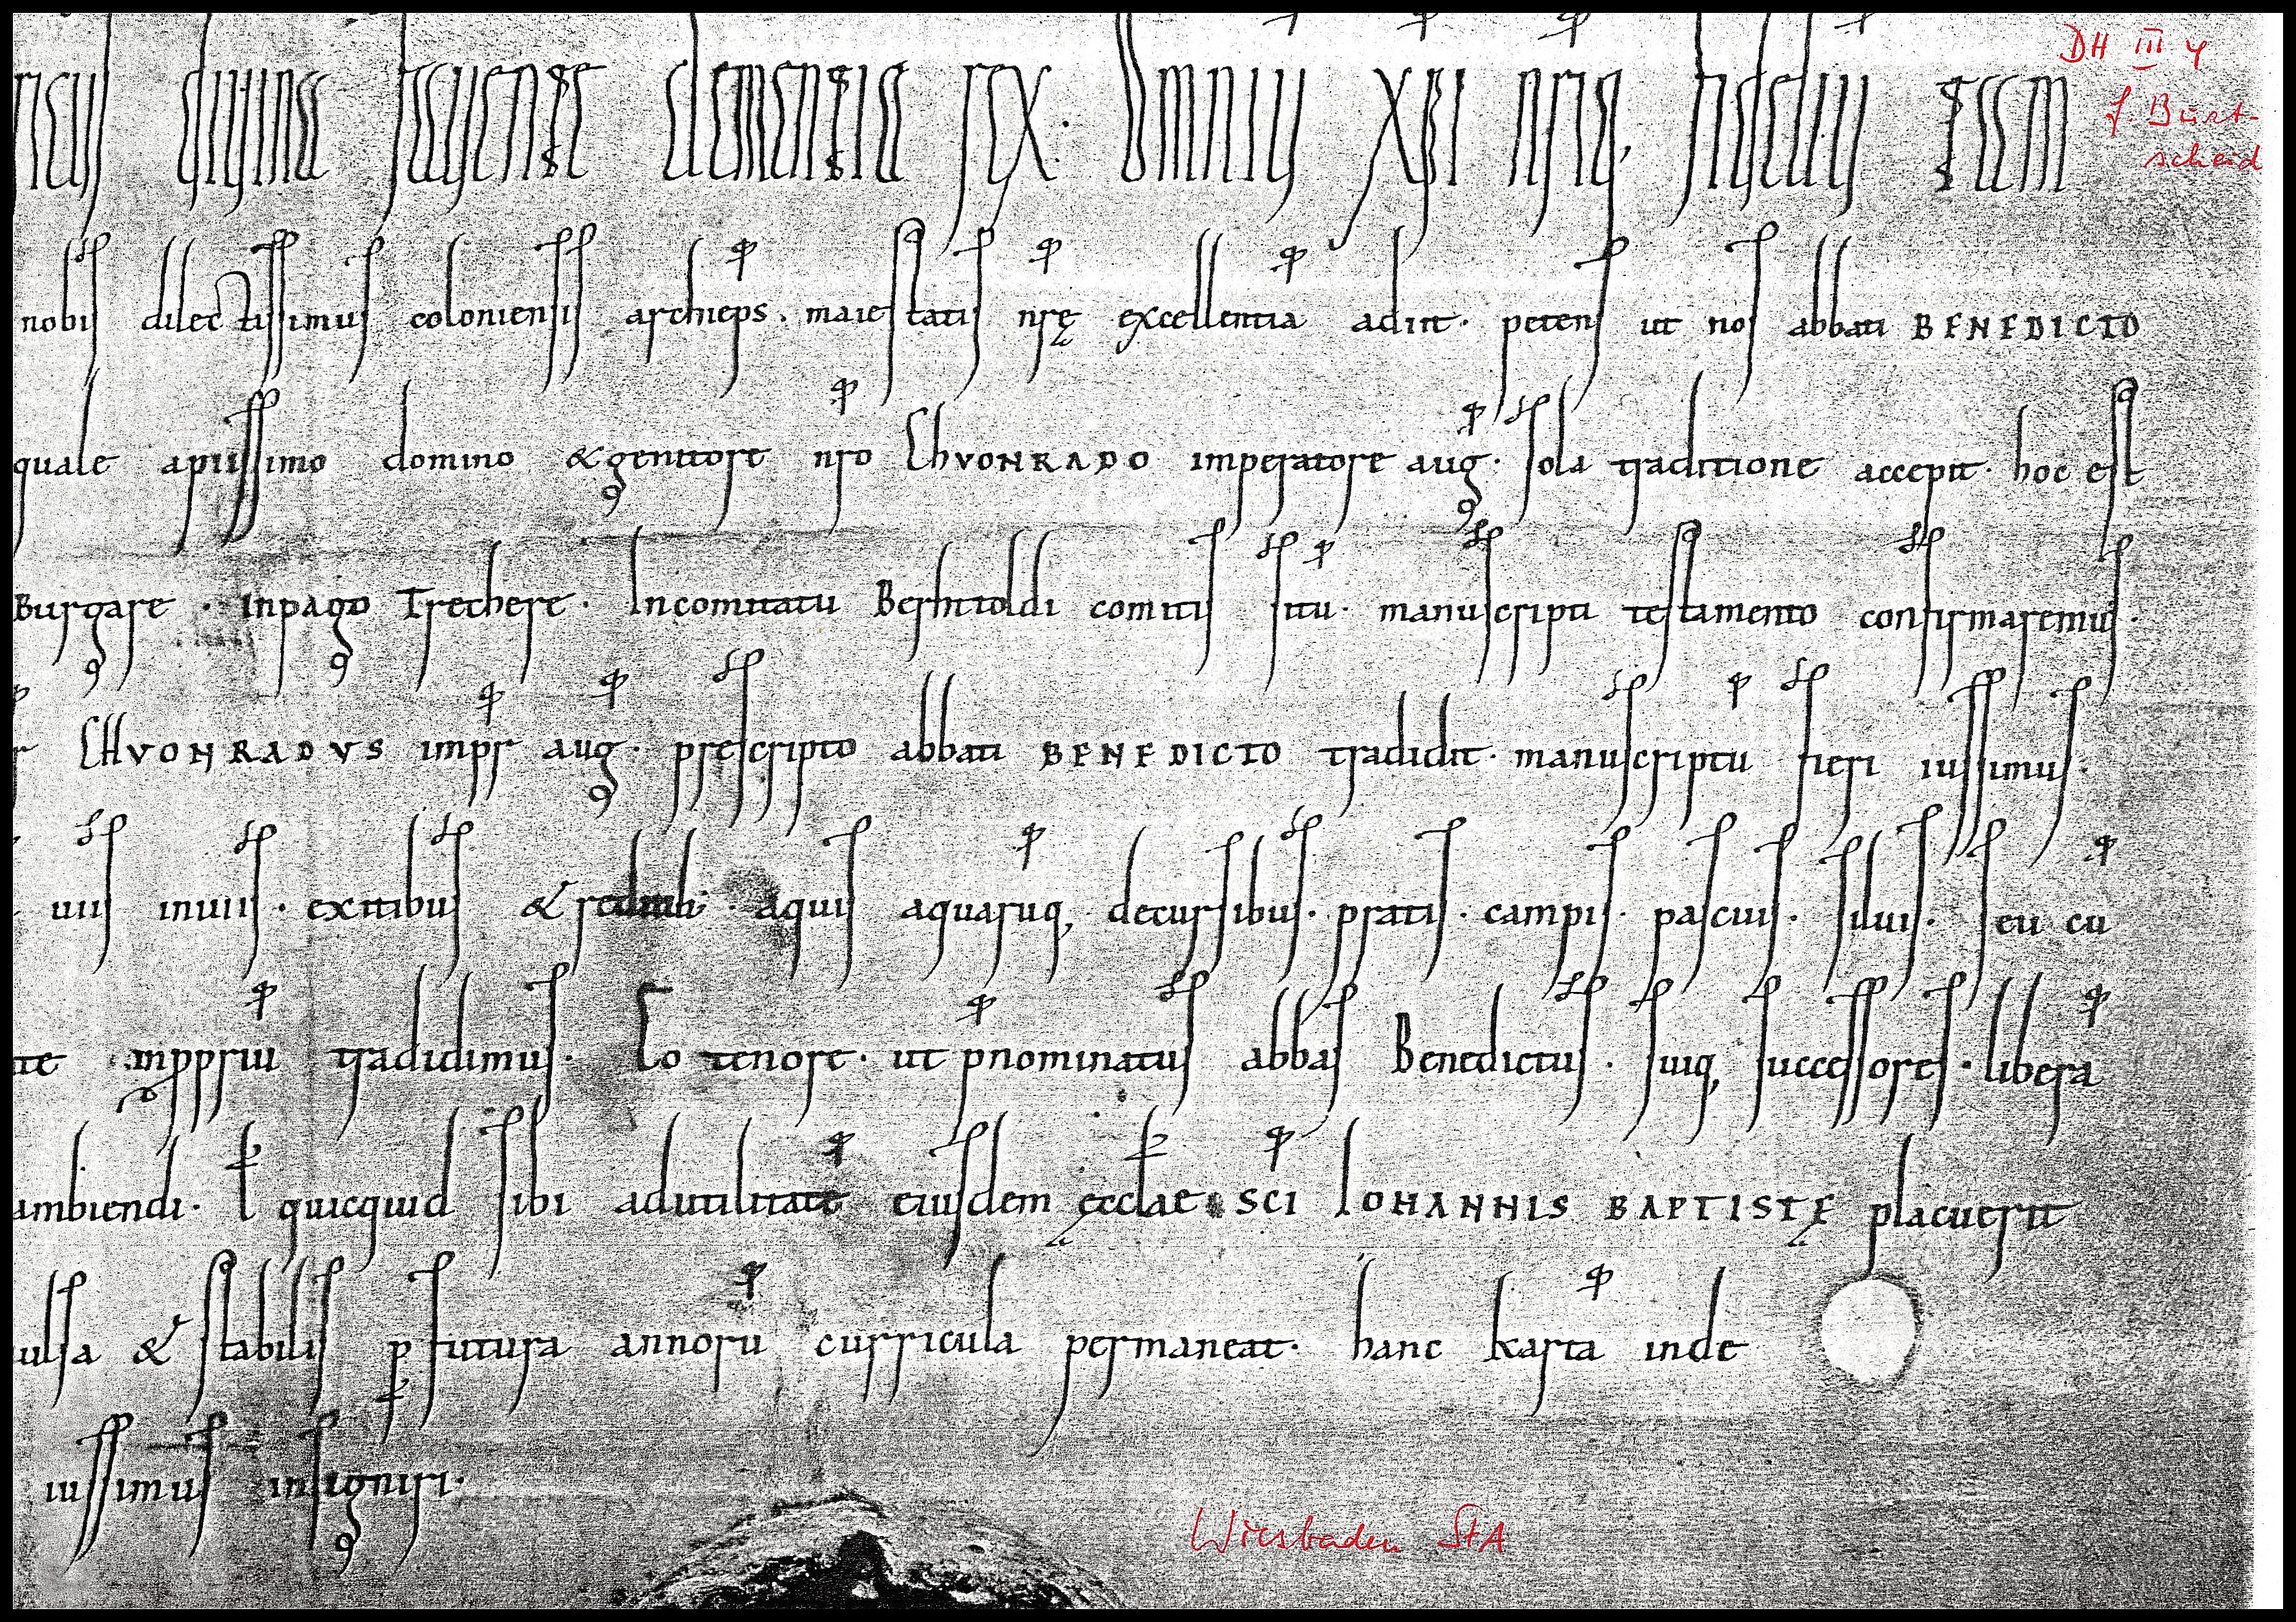 ricus diuina fauente clementia rex. Omniũ xp̃i nr̃iq, fideliũ tam
DH III 4
f. Burt-
scheid
nobis dilectissimus coloniensis archiep̃s. maiestatis nr̃ę excellentiã adiit. petens ut nos abbati BENEDICTO
quale a piissimo domino & genitore nr̃o ChVONRADO imperatore aug̃. sola traditione accepit. hoc est
Burgare. In pago Trechere. In comitatu Berhtoldi comitis sitũ. manuscripti testamento confirmaremus.
CHVONRADVS imp̃r aug̃. prescripto abbati BENEDICTO tradidit. manuscriptũ fieri iussimus.
uiis inuiis. exitibus & reditib;. aquis aquarũq, decursibus. pratis. campis. pascuis. siluis. seu cũ
te in pp̃riũ tradidimus. Eo tenore. ut p̃nominatus abbas Benedictus. suiq, successores. liberã
ambiendi. ł quicquid sibi ad utilitatẽ eiusdem ęcclae sc̃i IOHANNIS BAPTISTĘ placuerit
ulsa & stabilis p futura annorũ curricula permaneat. hanc kartã inde
iussimus insigniri.
Wiesbaden StA